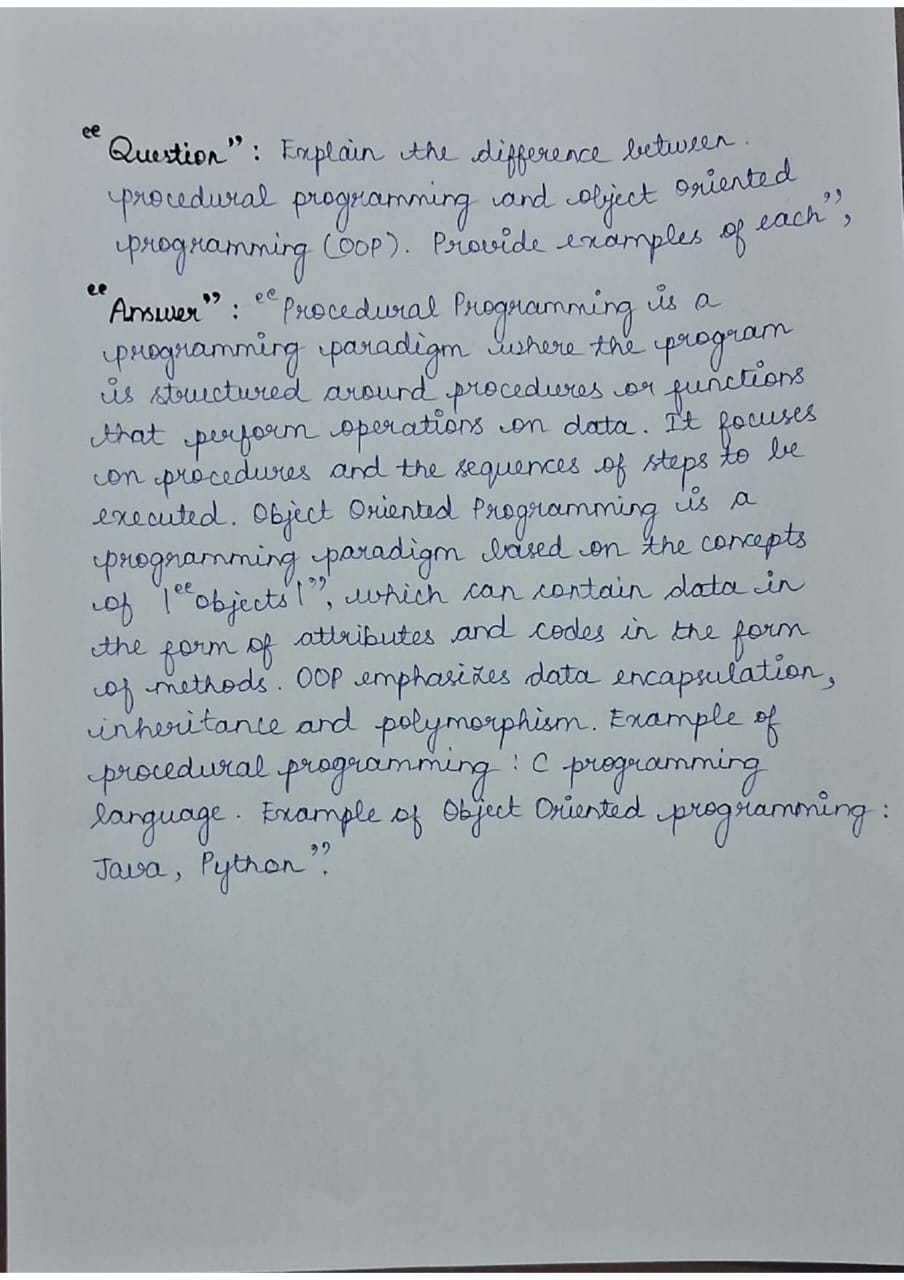 “Question”: Explain the difference between.
procedural programming and object oriented
programming (OOP). Provide examples of each”,
“Answer”: “Procedural Programming is a
programming paradigm where the program
is structured around procedures or functions
that perform operations on data. It focuses
on procedures and the sequences of steps to be
executed. Object Oriented Programming is a
programming paradigm based on the concepts
of |“objects|”, which can contain data in
the form of attributes and codes in the form
of methods. OOP emphasizes data encapsulation,
inheritance and polymorphism. Example of
procedural programming : C programming
language. Example of Object Oriented programming :
Java, Python”.